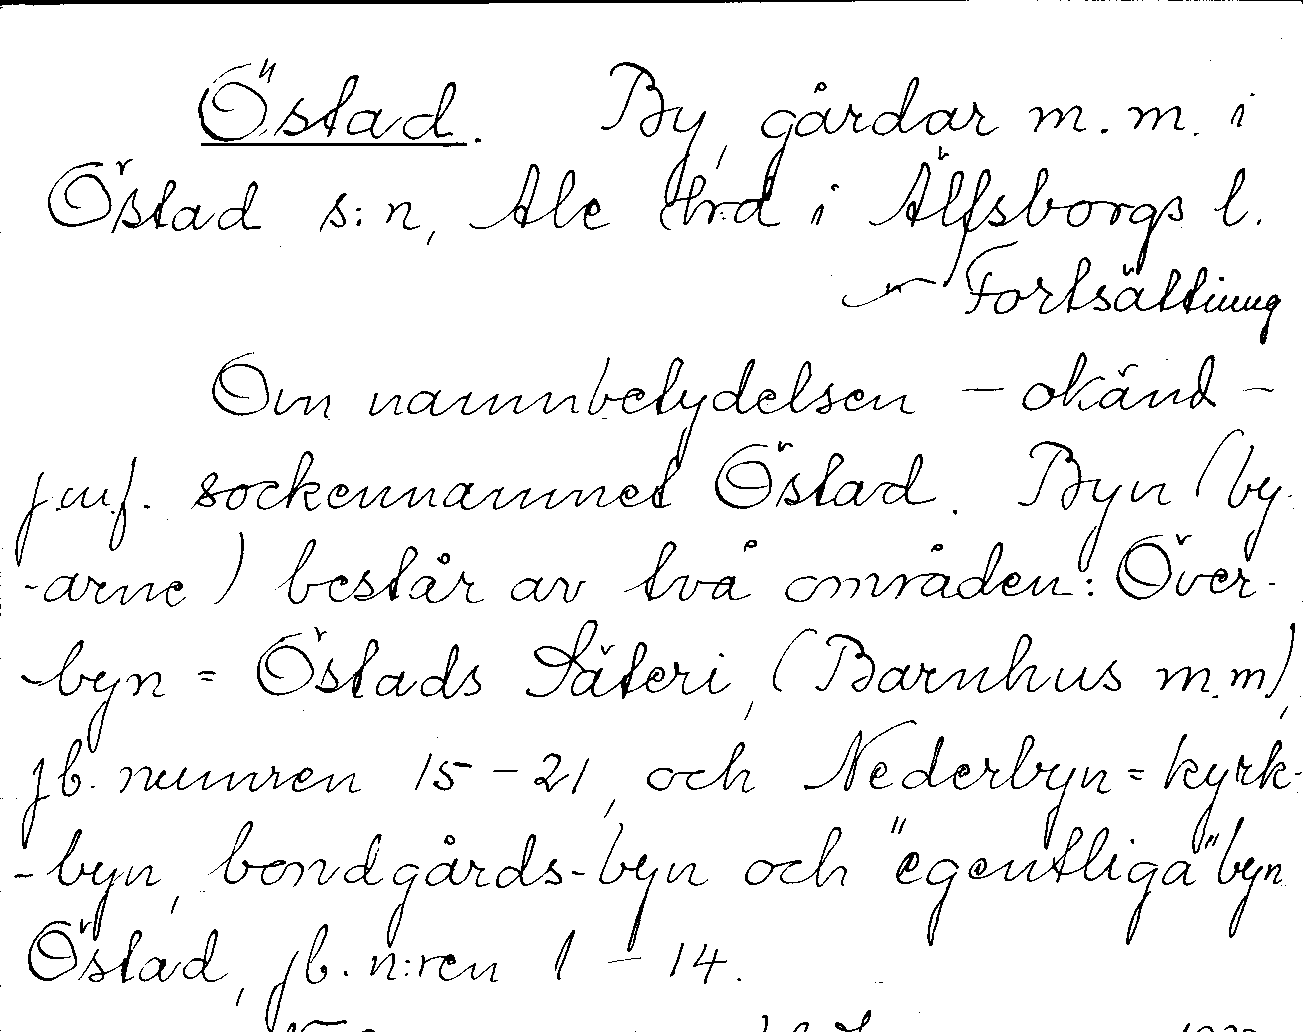 Östad. By, gårdar m.m. i
Östad s:n, Ale Hrd i Älfsborgs l.
Fortsättning
Om namnbetydelsen - okänd -
jmf. sockennamnet Östad. Byn (by-
-arne) består av två områden: Över-
-byn = Östads Säteri, (Barnhus m.m),
jb. numren 15-21, och Nederbyn = kyrk-
-byn, bondgårds-byn och "egentliga" byn
Östad, jb. n:ren 1 - 14.